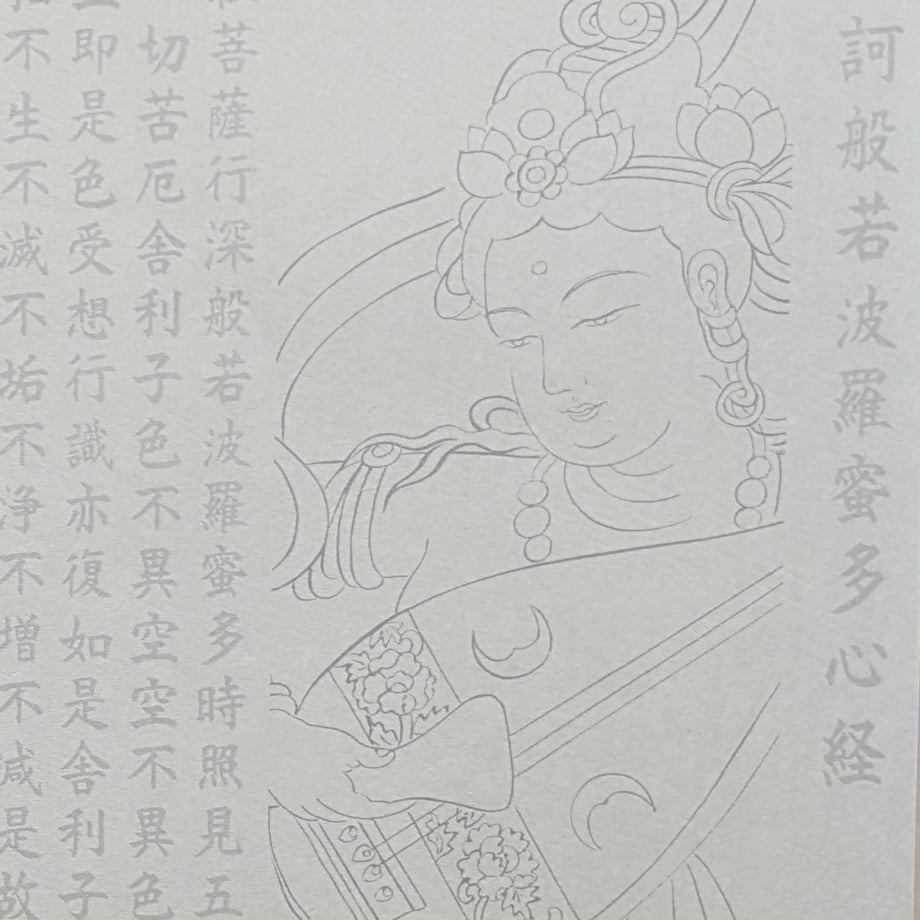 訶般若波羅蜜多心経
菩薩行深般若波羅蜜多時照見五
切苦厄舎利子色不異空空不異色
即是色受想行識亦復如是舎利子
不生不滅不垢不浄不増不減是故